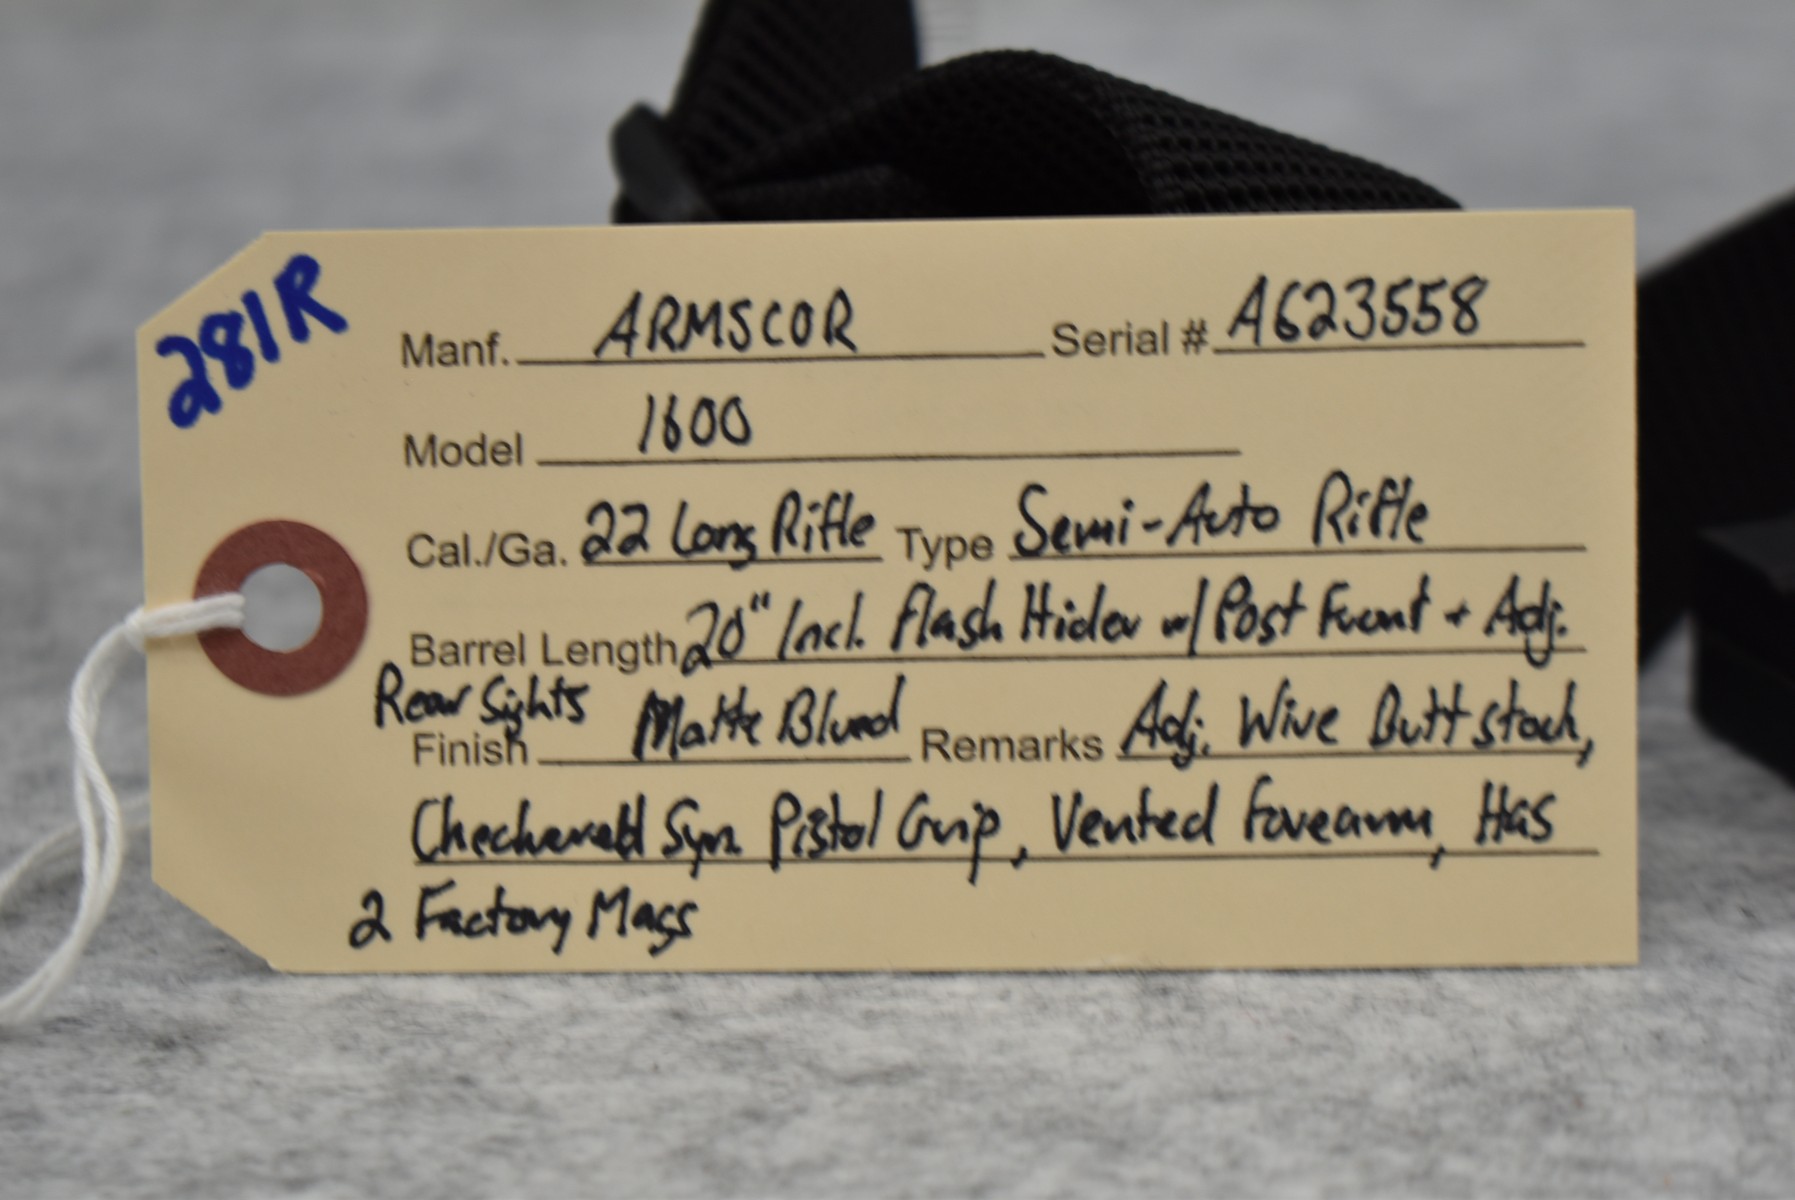 281R
Manf. ARMSCOR Serial # A623558
Model 1600
Cal./Ga. 22 Long Rifle Type Semi-Auto Rifle
Barrel Length 20" Incl. Flash Hider w/ Post Front + Adj.
Rear Sights
Finish Matte Blued Remarks Adj. Wire Buttstock,
Checkered Syn. Pistol Grip, Vented Forearm, Has
2 Factory Mags